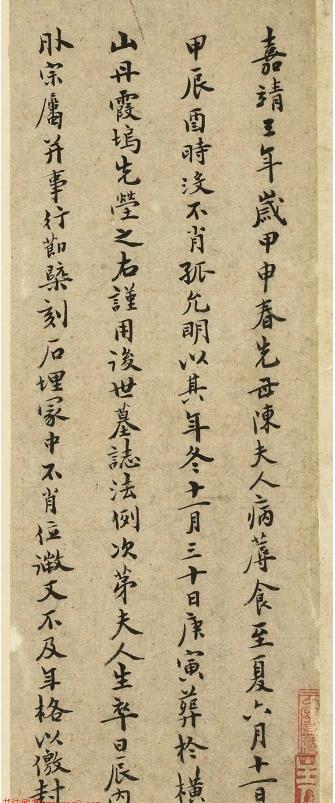 嘉靖三年歲甲申春先母陳夫人病蓐食至夏六月十一日
甲辰酉時沒不肖孤允明以其年冬十一月三十日庚寅葬於橫
山丹霞塢先塋之右謹用後世墓誌法例次第夫人生卒日辰內
外宗屬并事行節槩刻石埋冢中不肖位微文不及年格以儌封